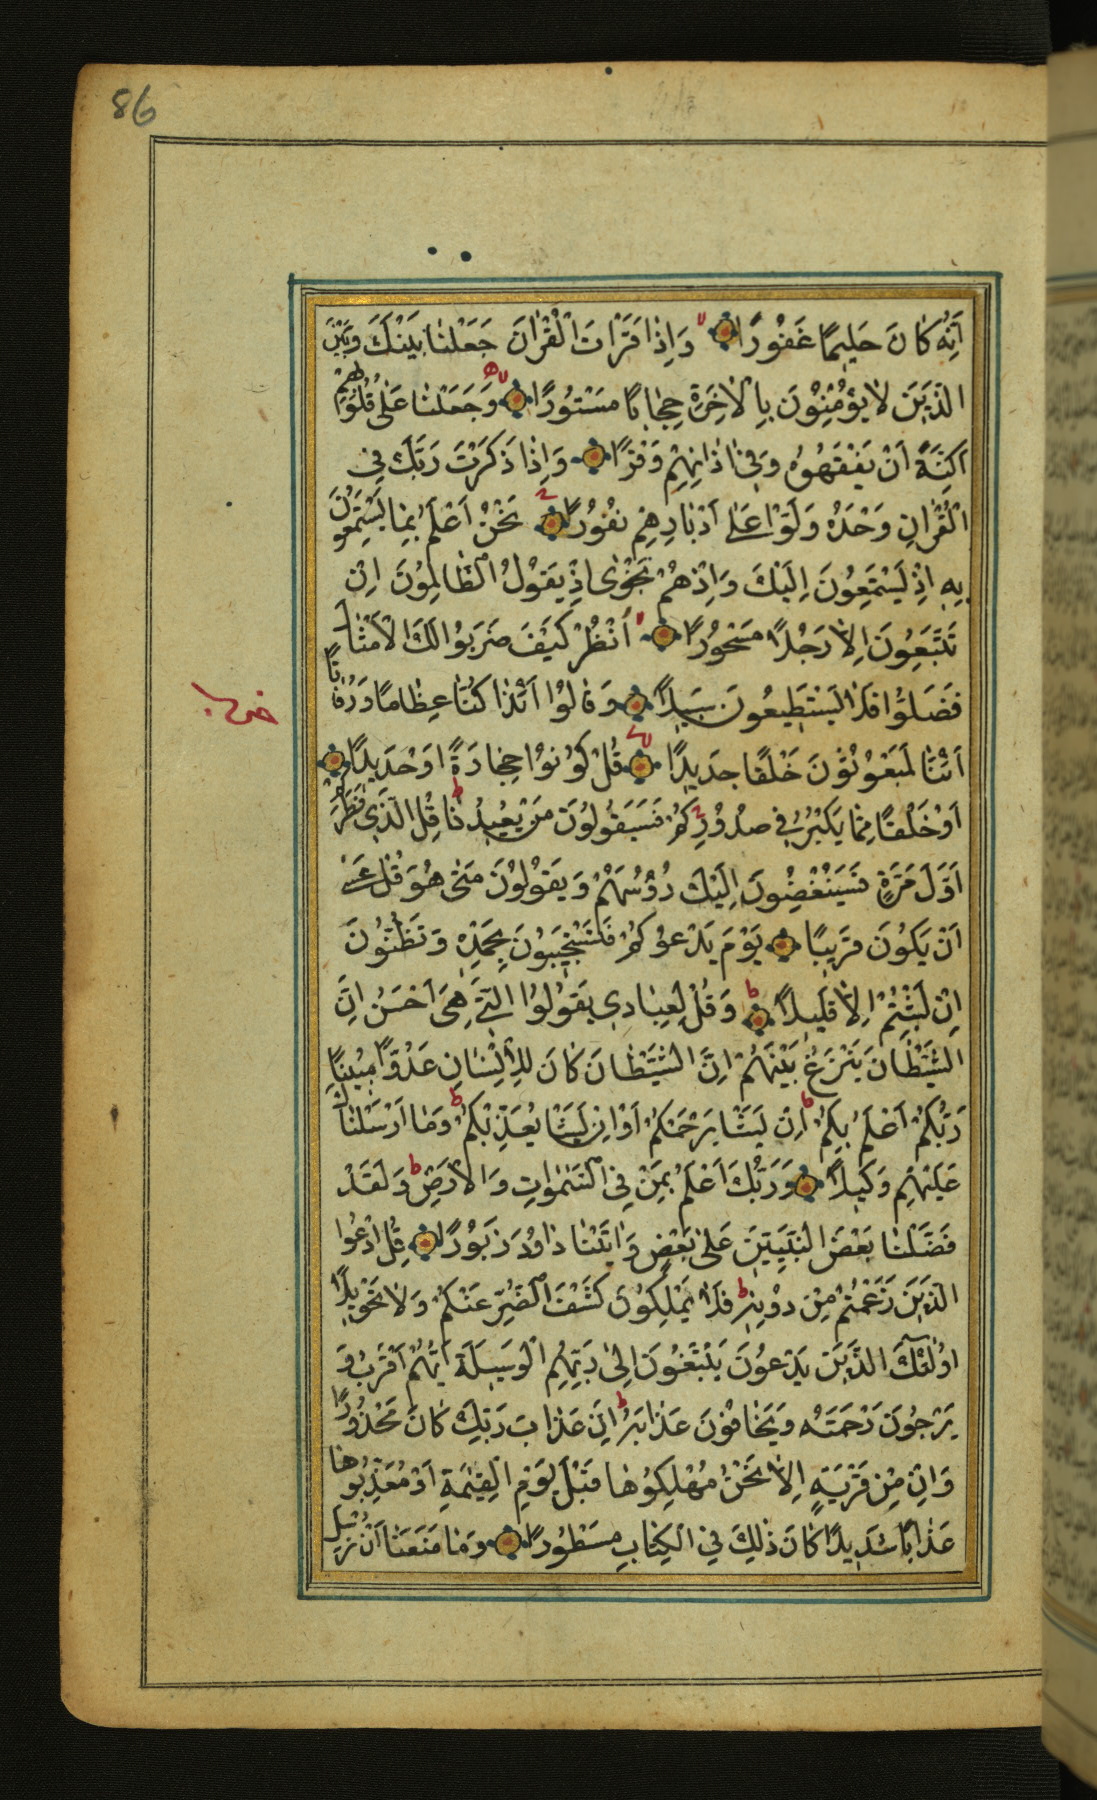 86
اِنَّهُ كَانَ حَلِيمًا غَفُورًا وَاِذَا قَرَاْتَ الْقُرْاٰنَ جَعَلْنَا بَيْنَكَ وَبَيْنَ
الَّذِينَ لَا يُؤْمِنُونَ بِالْاٰخِرَةِ حِجَابًا مَسْتُورًا وَجَعَلْنَا عَلٰى قُلُوبِهِمْ
اَكِنَّةً اَنْ يَفْقَهُوهُ وَفِى اٰذَانِهِمْ وَقْرًا وَاِذَا ذَكَرْتَ رَبَّكَ فِى
الْقُرْاٰنِ وَحْدَهُ وَلَّوْا عَلٰى اَدْبَارِهِمْ نُفُورًا نَحْنُ اَعْلَمُ بِمَا يَسْتَمِعُونَ
بِهِ اِذْ يَسْتَمِعُونَ اِلَيْكَ وَاِذْ هُمْ نَجْوٰى اِذْ يَقُولُ الظَّالِمُونَ اِنْ
تَتَّبِعُونَ اِلَّا رَجُلًا مَسْحُورًا اُنْظُرْ كَيْفَ ضَرَبُوا لَكَ الْاَمْثَالَ
فَضَلُّوا فَلَا يَسْتَطِيعُونَ سَبِيلًا وَقَالُوا اَئِذَا كُنَّا عِظَامًا وَرُفَاتًا
اَئِنَّا لَمَبْعُوثُونَ خَلْقًا جَدِيدًا قُلْ كُونُوا حِجَارَةً اَوْ حَدِيدًا
اَوْ خَلْقًا مِمَّا يَكْبُرُ فِى صُدُورِكُمْ فَسَيَقُولُونَ مَنْ يُعِيدُنَا قُلِ الَّذِى فَطَرَكُمْ
اَوَّلَ مَرَّةٍ فَسَيُنْغِضُونَ اِلَيْكَ رُؤُسَهُمْ وَيَقُولُونَ مَتٰى هُوَ قُلْ عَسٰى
اَنْ يَكُونَ قَرِيبًا يَوْمَ يَدْعُوكُمْ فَتَسْتَجِيبُونَ بِحَمْدِهِ وَتَظُنُّونَ
اِنْ لَبِثْتُمْ اِلَّا قَلِيلًا وَقُلْ لِعِبَادِى يَقُولُوا الَّتِى هِىَ اَحْسَنُ اِنَّ
الشَّيْطَانَ يَنْزَغُ بَيْنَهُمْ اِنَّ الشَّيْطَانَ كَانَ لِلْاِنْسَانِ عَدُوًّا مُبِينًا
رَبُّكُمْ اَعْلَمُ بِكُمْ اِنْ يَشَاْ يَرْحَمْكُمْ اَوْ اِنْ يَشَاْ يُعَذِّبْكُمْ وَمَا اَرْسَلْنَاكَ
عَلَيْهِمْ وَكِيلًا وَرَبُّكَ اَعْلَمُ بِمَنْ فِى السَّمٰوَاتِ وَالْاَرْضِ وَلَقَدْ
فَضَّلْنَا بَعْضَ النَّبِيِّينَ عَلٰى بَعْضٍ وَاٰتَيْنَا دَاوُدَ زَبُورًا قُلِ ادْعُوا
الَّذِينَ زَعَمْتُمْ مِنْ دُونِهِ فَلَا يَمْلِكُونَ كَشْفَ الضُّرِّ عَنْكُمْ وَلَا تَحْوِيلًا
اُولٰئِكَ الَّذِينَ يَدْعُونَ يَبْتَغُونَ اِلٰى رَبِّهِمُ الْوَسِيلَةَ اَيُّهُمْ اَقْرَبُ وَ
يَرْجُونَ رَحْمَتَهُ وَيَخَافُونَ عَذَابَهُ اِنَّ عَذَابَ رَبِّكَ كَانَ مَحْذُورًا
وَاِنْ مِنْ قَرْيَةٍ اِلَّا نَحْنُ مُهْلِكُوهَا قَبْلَ يَوْمِ الْقِيٰمَةِ اَوْ مُعَذِّبُوهَا
عَذَابًا شَدِيدًا كَانَ ذٰلِكَ فِى الْكِتَابِ مَسْطُورًا وَمَا مَنَعَنَا اَنْ نُرْسِلَ